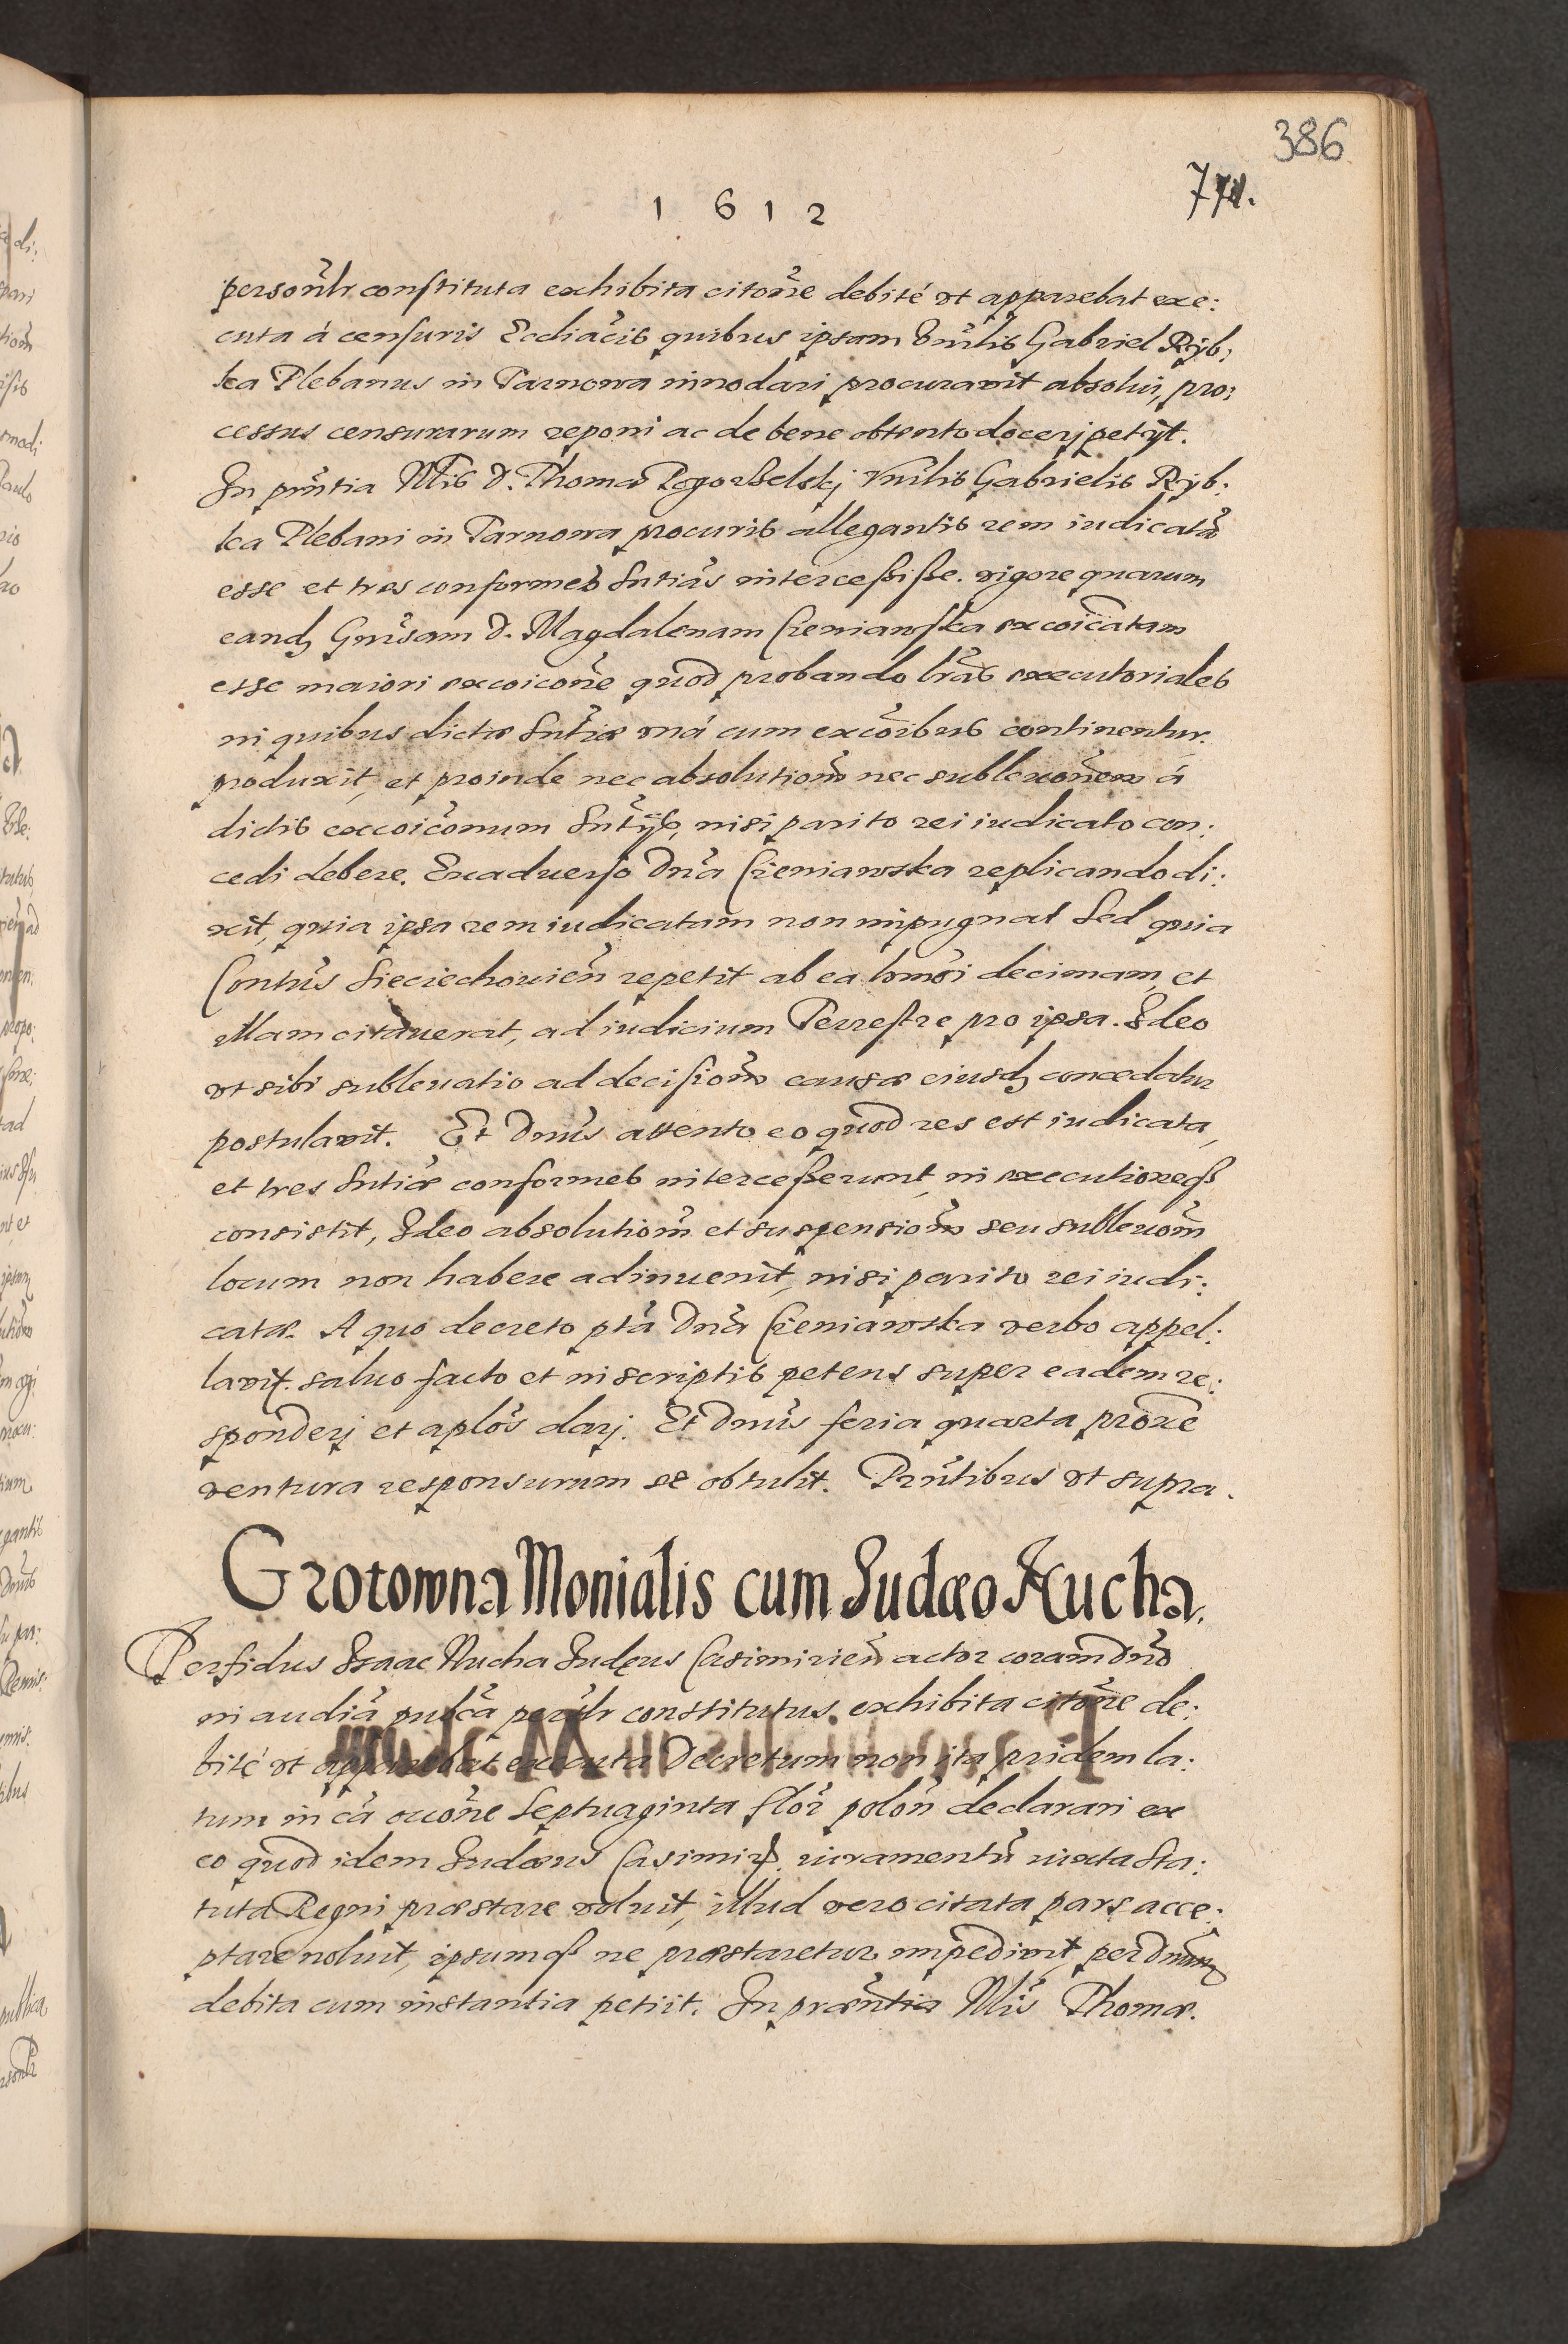 386
771.
1 6 1 2
personlr constituta exhibita citone debité vt apparebat exe:
cuta á censuris Eccliacis quibus ipsam Vnlis Gabriel Ryb:
ka Plebanus in Tarnowa innodari procuravit absolui, pro:
cessus censurarum reponi ac de bene obtento docerj petyt.
In pntia Mis D. Thomæ Pogorßelskj Vnlis Gabrielis Ryb:
ka Plebani in Tarnowa procuris allegantis rem iudicatã
esse et tres conformes Sntias interceßiße. vigore quarum
eandȝ Gnsam D. Magdalenam Czeniawska excoicatam
esse maiori excoicone quod probando lras executoriales
in quibus dictæ Sntiæ vná cum excoibus continentur.
produxit, et proinde nec absolutiom nec subleuonem á
dictis excoiconum Sntijs, nisi parito rei iudicato con:
cedi debere. Exaduerso Dna Czeniawska replicando di:
xit, quia ipsa rem iudicatam non impugnat Sed quia
Contus Sieciechouien repetit ab ea lomoi decimam, et
illam citauerat, ad iudicium Terrestre pro ipsa. Ideo
vt sibi subleuatio ad decisiom causæ eiusdȝ concedatur
postulavit. Et Dnus attento eo quod res est iudicata,
et tres Sntiæ conformes interceßerunt, in executioneqȝ
consistit, Ideo absolutiom et suspensiom seu subleuom
locum non habere adinuenit, nisi parito rei iudi:
catæ. A quo decreto pta Dna Czeniawska verbo appel:
lavit. saluo facto et in scriptis petens super eadem re:
sponderj et aplos darj. Et Dnus feria quarta proxe
ventura responsurum se obtulit. Pntibus vt supra.
Grotowna Monialis cum Judæo Nucha.
Perfidus Isaac Nucha Judęus Casimirien actor coram Dno
in audia pulca perslr constitutus. exhibita citone de:
bité vt apparebat executa Decretum non ita pridem la:
tum in ca occone Septuaginta flor polon declarari ex
eo quod idem Judæus Casimir. iuramentu iuxta Sta:
tuta Regni præstare voluit, illud vero citata pars acce:
ptare noluit, ipsumqȝ ne præstaretur impedivit, per Dnum
debita cum instantia petiit. In præntia Mis Thomæ.